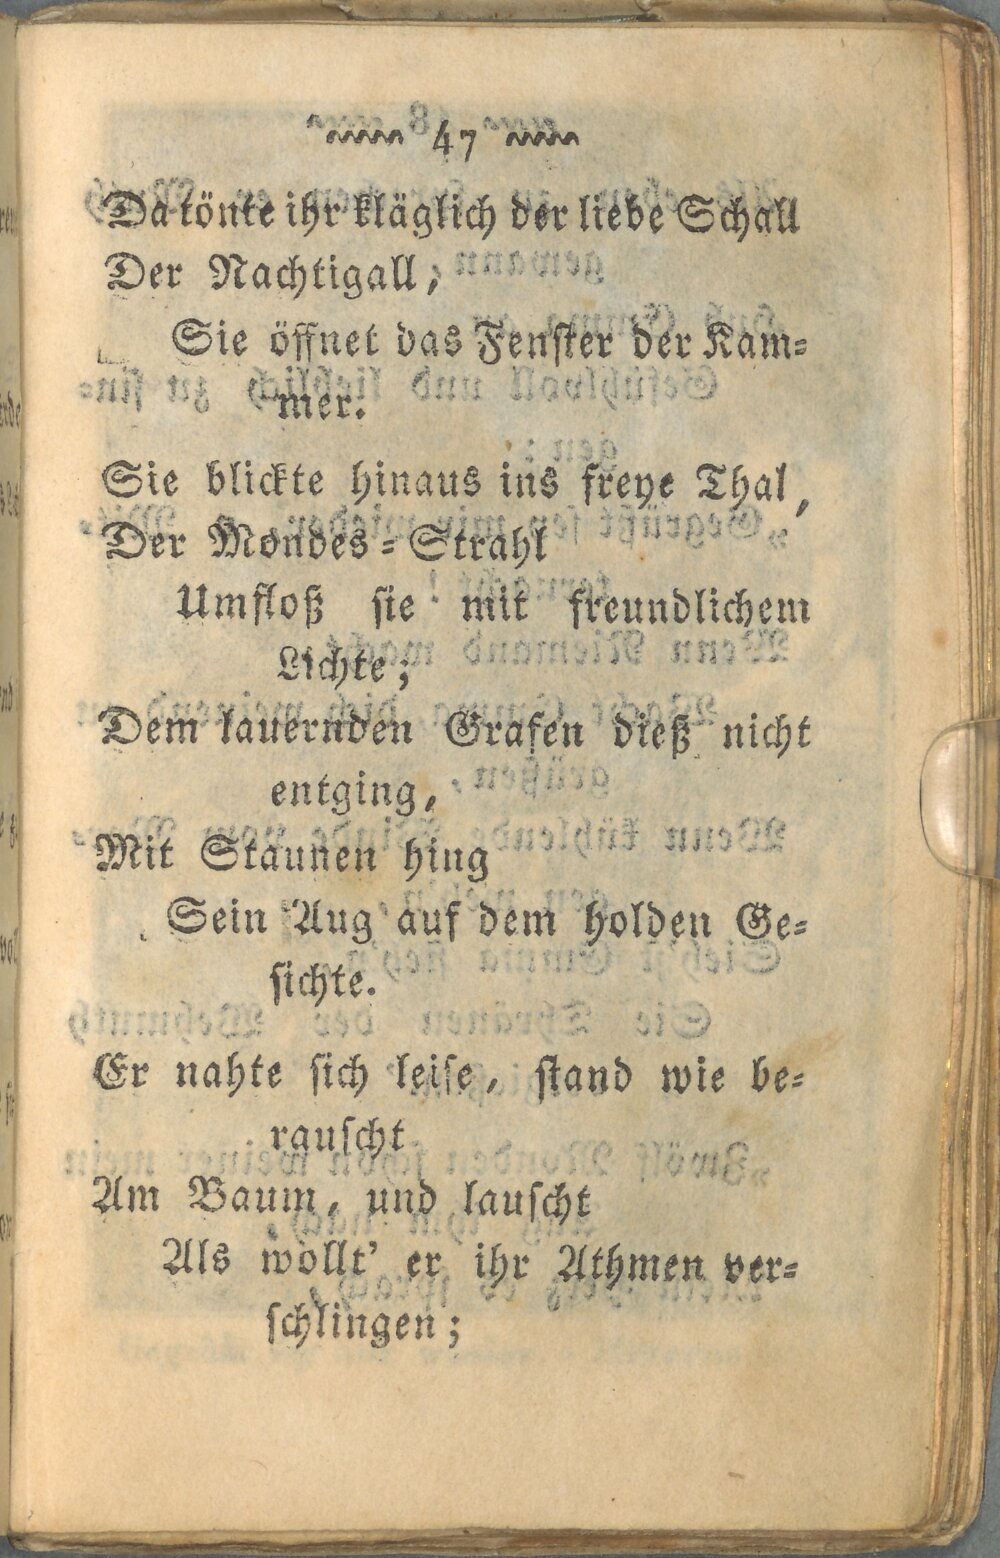 47
Da tönte ihr kläglich der liebe Schall
Der Nachtigall,
Sie öffnet das Fenſter der Kam⸗
mer.
Sie blickte hinaus ins freye Thal,
Der Mondes⸗Strahl
Umfloß ſie mit freundlichem
Lichte;
Dem lauernden Grafen dieß nicht
entging,
Mit Staunen hing
Sein Aug auf dem holden Ge⸗
ſichte.
Er nahte ſich leiſe, ſtand wie be⸗
rauſcht
Am Baum, und lauſcht
Als wollt’ er ihr Athmen ver⸗
ſchlingen;